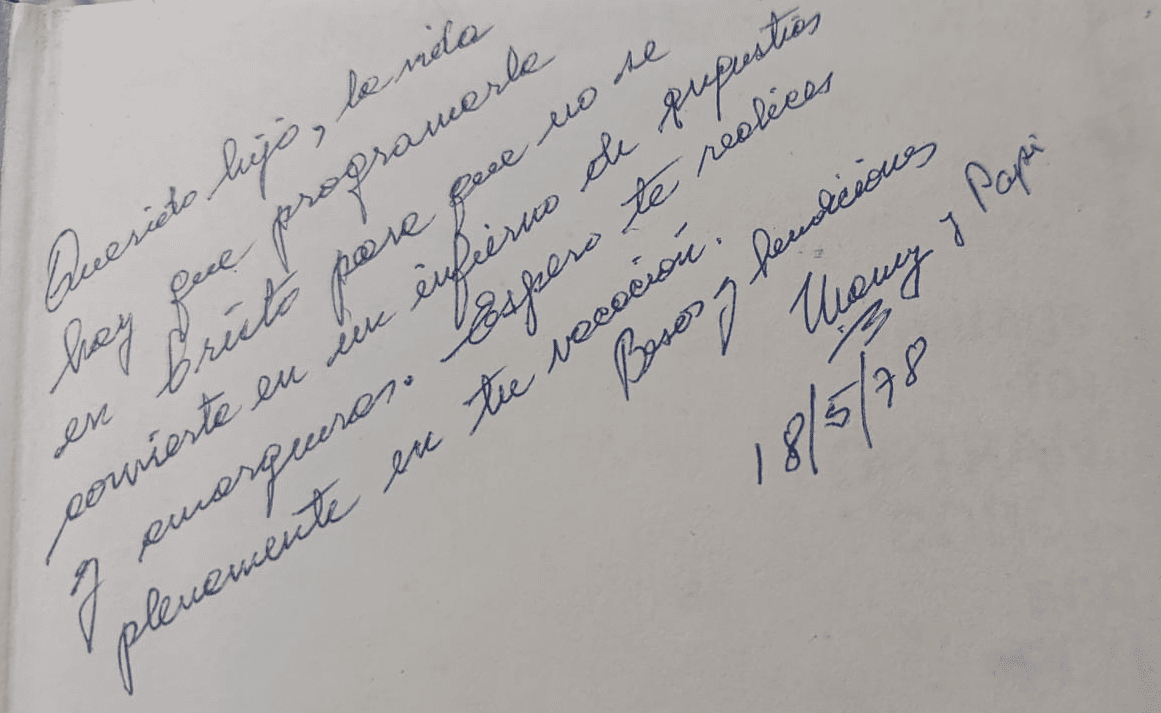 Querido hijo, la vida
hay que programarla
en Cristo para que no se
convierta en un infierno de angustias
y amarguras. Espero te realices
plenamente en tu vocación.
Besos y bendiciones
Mamy y Papi
18/5/78